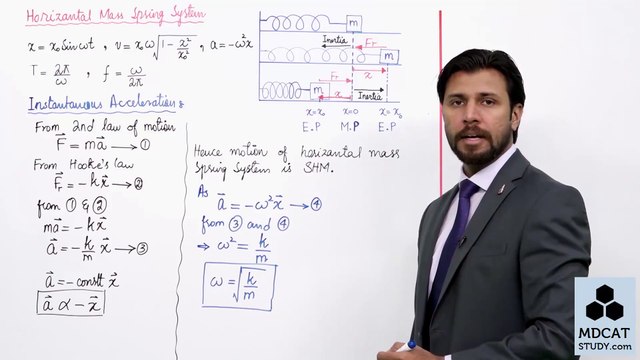 Horizantal Mass Spring System
x = x₀ Sin ωt , v = x₀ ω √(1 - x²/x₀²) , a = -ω²x
T = 2π/ω , f = ω/2π
Instantaneous Acceleration :
From 2nd law of motion
F⃗ = ma⃗ → ①
From Hooke's law
F⃗r = -kx⃗ → ②
from ① & ②
ma⃗ = -kx⃗
a⃗ = -k/m x⃗ → ③
a⃗ = -constt x⃗
a⃗ α -x⃗
m
Inertia
Fr
m
x
Fr
m
x
Inertia
x=x₀ x=0 x=x₀
E.P M.P E.P
Hence motion of horizantal mass
Spring System is SHM.
As
a⃗ = -ω²x⃗ → ④
from ③ and ④
⇒ ω² = k/m
ω = √(k/m)
MDCAT
STUDY.com